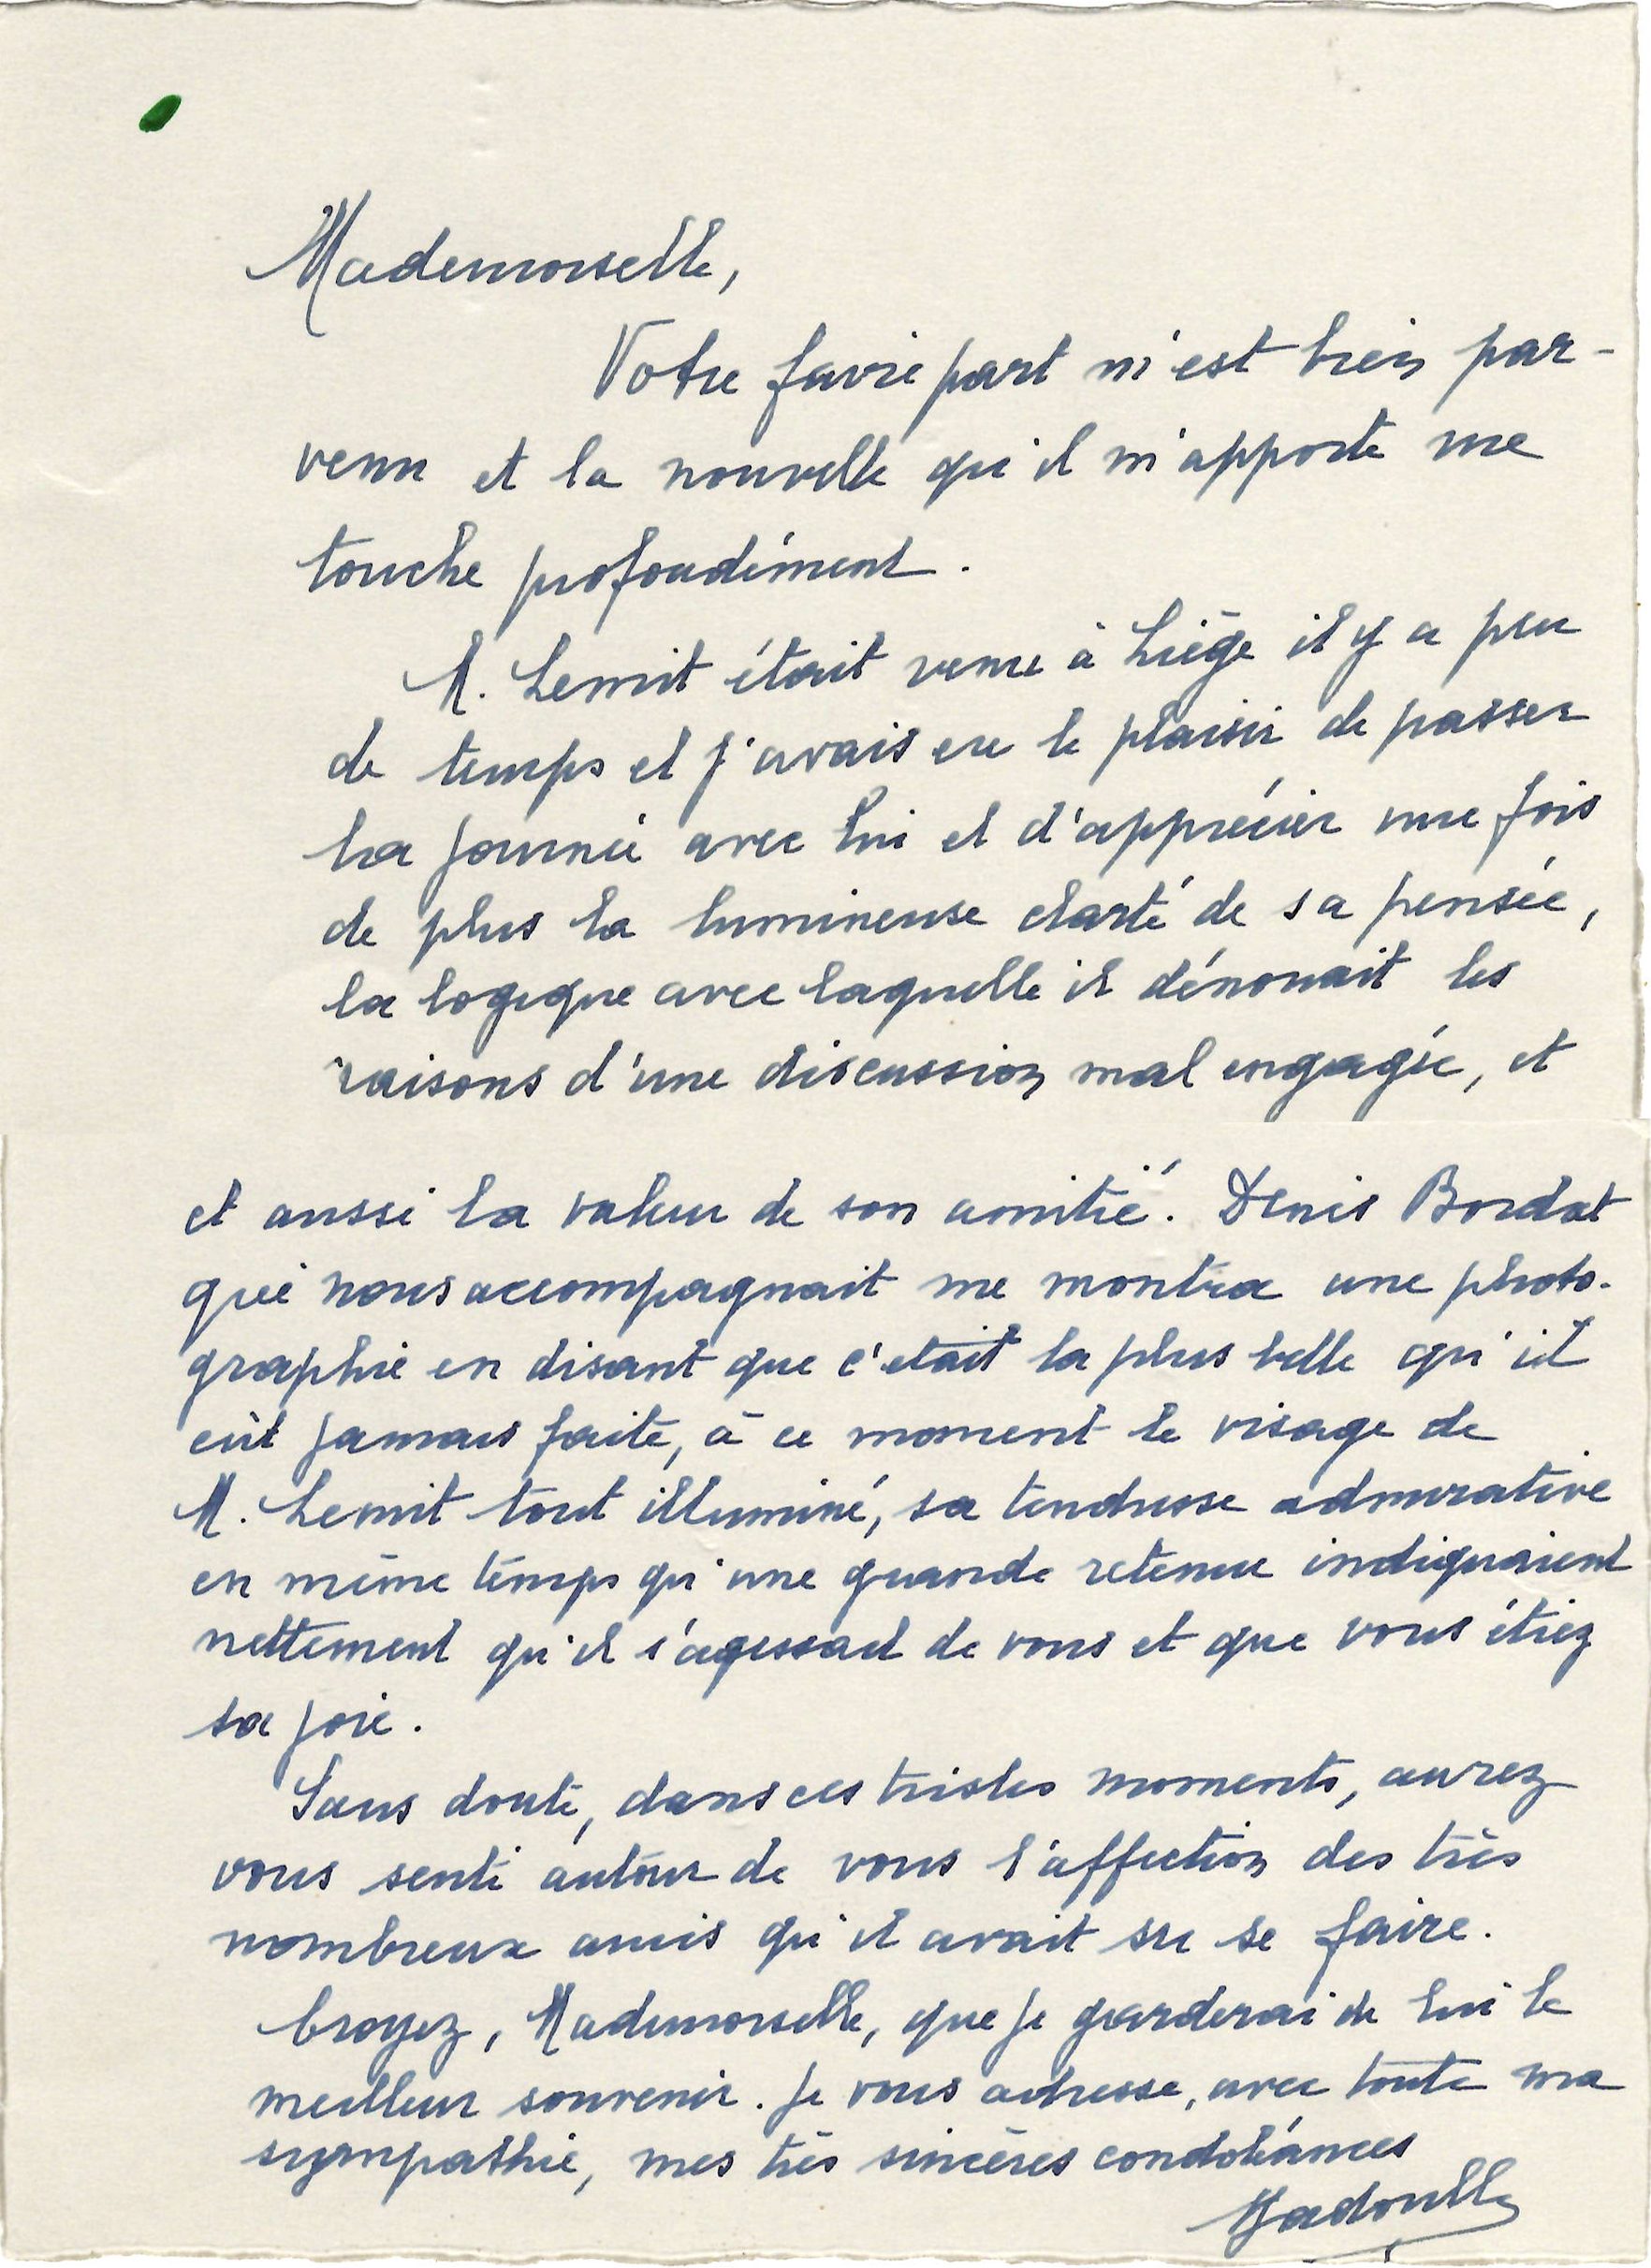 Mademoiselle,
Votre faire part m'est bien par-
venu et la nouvelle qu'il m'apporte me
touche profondément.
M. Lemit était venu à Liège il y a peu
de temps et j'avais eu le plaisir de passer
la journée avec lui et d'apprécier une fois
de plus la lumineuse clarté de sa pensée,
la logique avec laquelle il dénouait les
raisons d'une discussion mal engagée, et
et aussi la valeur de son amitié. Denis Bordat
qui nous accompagnait me montra une photo-
graphie en disant que c'etait la plus belle qu'il
eût jamais faite, à ce moment le visage de
M. Lemit tout illuminé, sa tendresse admirative
en même temps qu'une grande retenue indiquaient
nettement qu'il s'agissait de vous et que vous étiez
sa joie.
Sans doute, dans ces tristes moments, aurez
vous senti autour de vous l'affection des très
nombreux amis qu'il avait su se faire.
Croyez, Mademoiselle, que je garderai de lui le
meilleur souvenir. Je vous adresse, avec toute ma
sympathie, mes très sincères condoléances